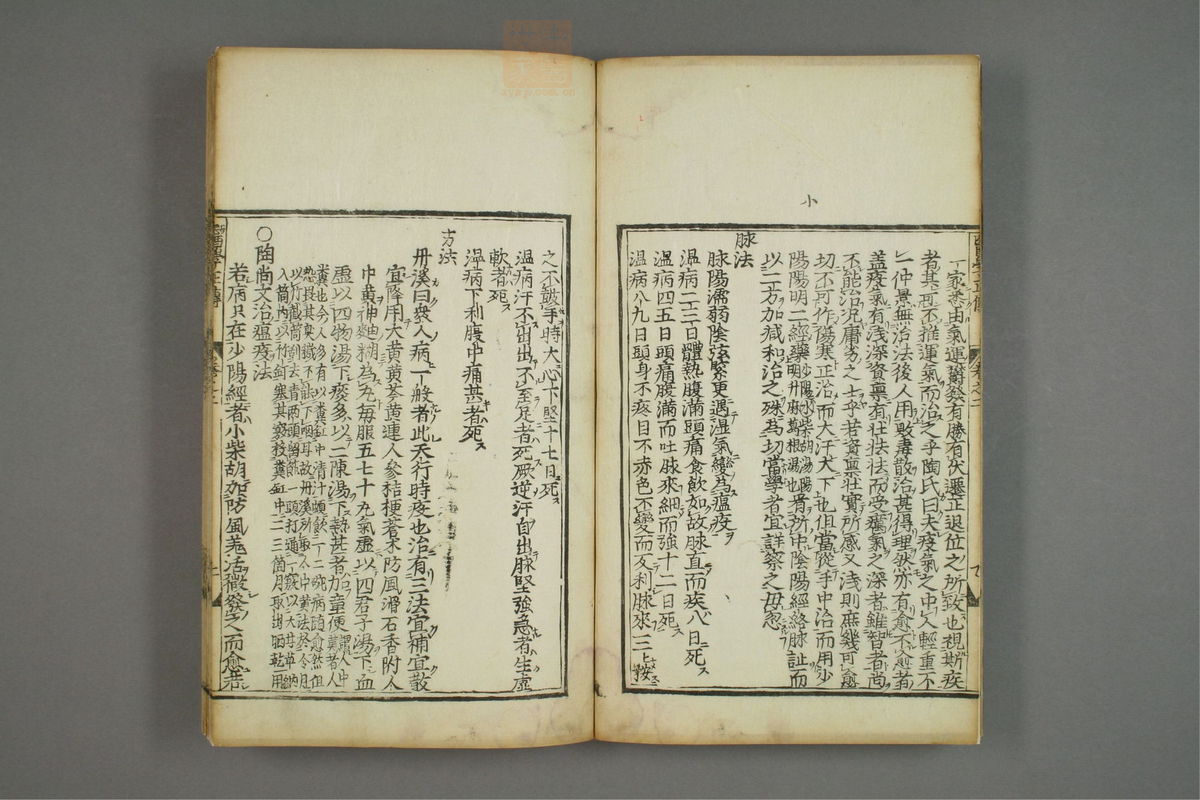 小
一家悉由氣運欝發有勝有伏遷正退位之所致也視斯疾
者其可不推運氣而治之乎陶氏曰夫疫氣之中人輕重不
一仲景無治法後人用敗毒散治甚得理然亦有愈不愈者
盖疫氣有浅深資稟有壮怯怯而受癘氣之深者雖智者尚
不能治况庸劣之士乎若資稟壮實所感又浅則庶幾可愈
切不可作傷寒正治而大汗大下也但當從乎中治而用少
陽陽明二經藥少陽小柴胡湯陽明升麻葛根湯也看所中陰陽經絡脉証而
以二方加减和治之殊為切當學者宜詳察之毋忽
脉法
脉陽濡弱陰弦緊更遇湿氣變為瘟疫
温病二三日體熱腹滿頭痛食飲如故脉直而疾八日死
温病四五日頭痛腹滿而吐脉來細而強十二日死
温病八九日頭身不疼目不赤色不變而反利脉來三上按
之不皷手時大心下堅十七日死
温病汗不出出不至足者死厥逆汗自出脉堅強急者生虚
軟者死
温病下利腹中痛甚者死
方法
丹溪曰衆人病一般者此天行時疫也治有三法宜補宜散
宜降用大黄黄芩黄連人參桔梗蒼术防風滑石香附人
中黄神曲糊為丸毎服五七十丸氣虚以四君子湯下血
虚以四物湯下痰多以二陳湯下熱甚者加童便
〇陶尚文治瘟疫法
若病只在少陽經者小柴胡加防風羌活微發之而愈若